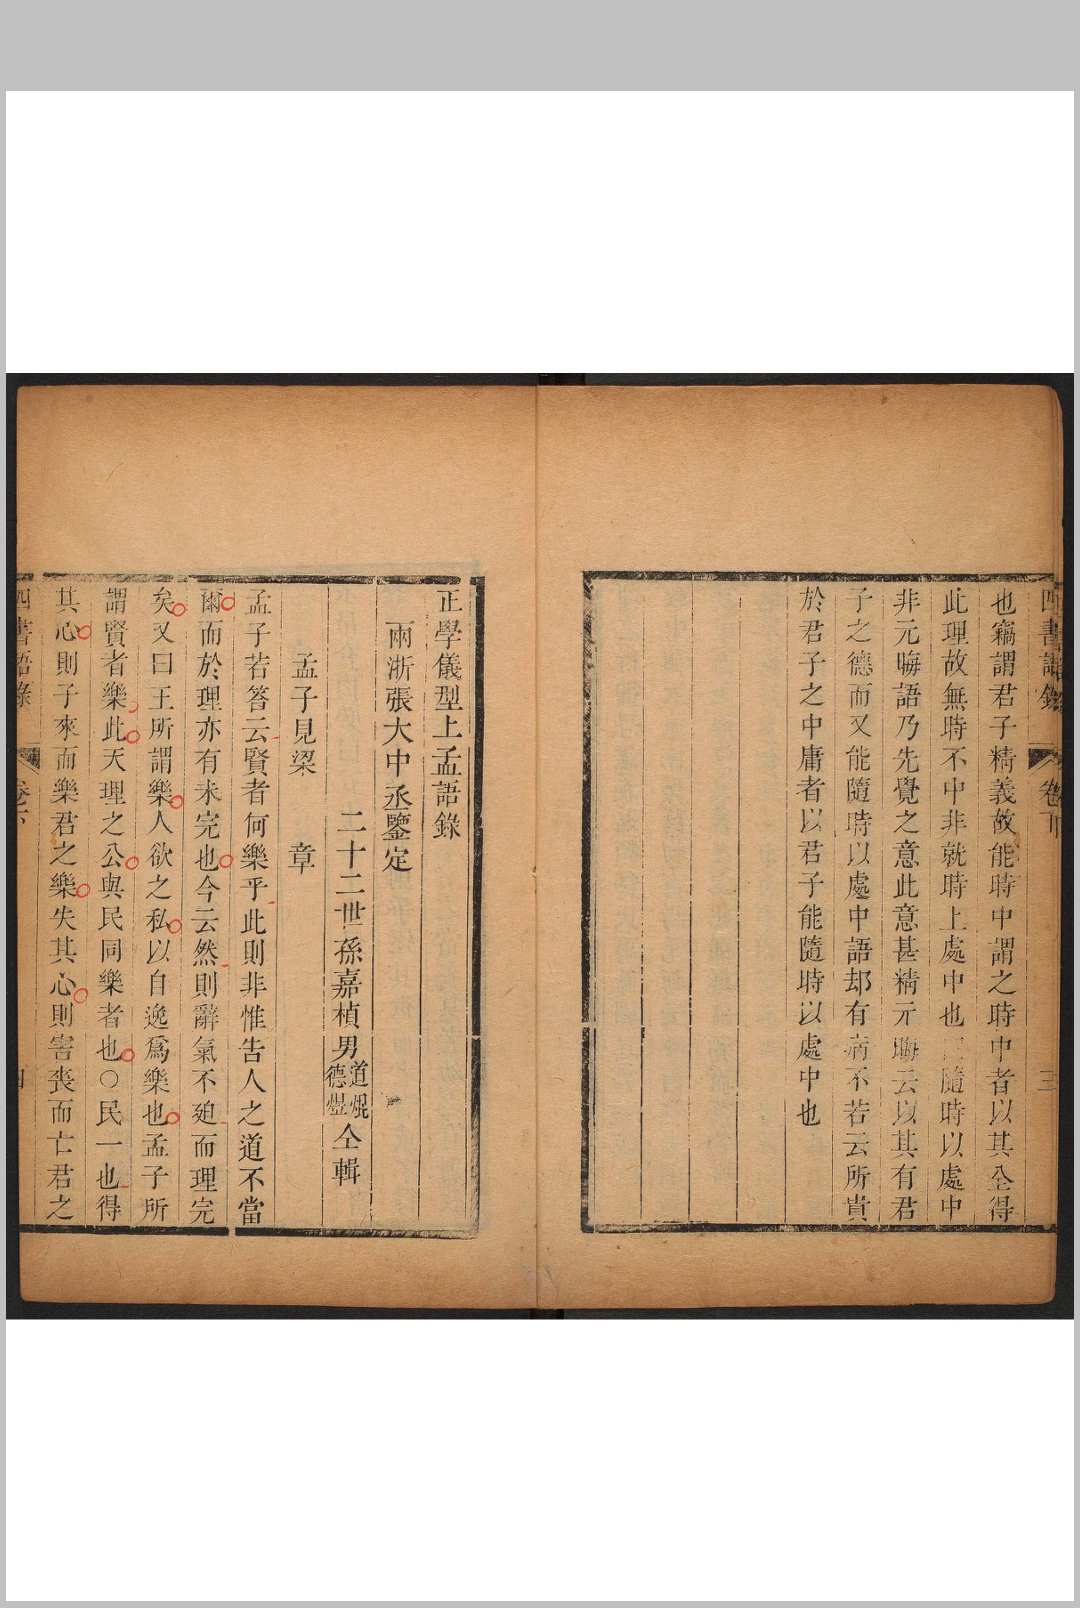 四書語錄 卷下 三
也竊謂君子精義故能時中謂之時中者以其全得
此理故無時不中非就時上處中也 隨時以處中
非元晦語乃先覺之意此意甚精元晦云以其有君
子之德而又能隨時以處中語却有病不若云所貴
於君子之中庸者以君子能隨時以處中也
正學儀型上孟語錄
兩浙張大中丞鑒定
二十二世孫嘉楨男道焜德煜仝輯
孟子見梁 章
孟子若答云賢者何樂乎此則非惟告人之道不當
爾而於理亦有未完也今云然則辭氣不廹而理完
矣又曰王所謂樂人欲之私以自逸爲樂也孟子所
謂賢者樂此天理之公與民同樂者也○民一也得
其心則子來而樂君之樂失其心則害喪而亡君之
四書語錄